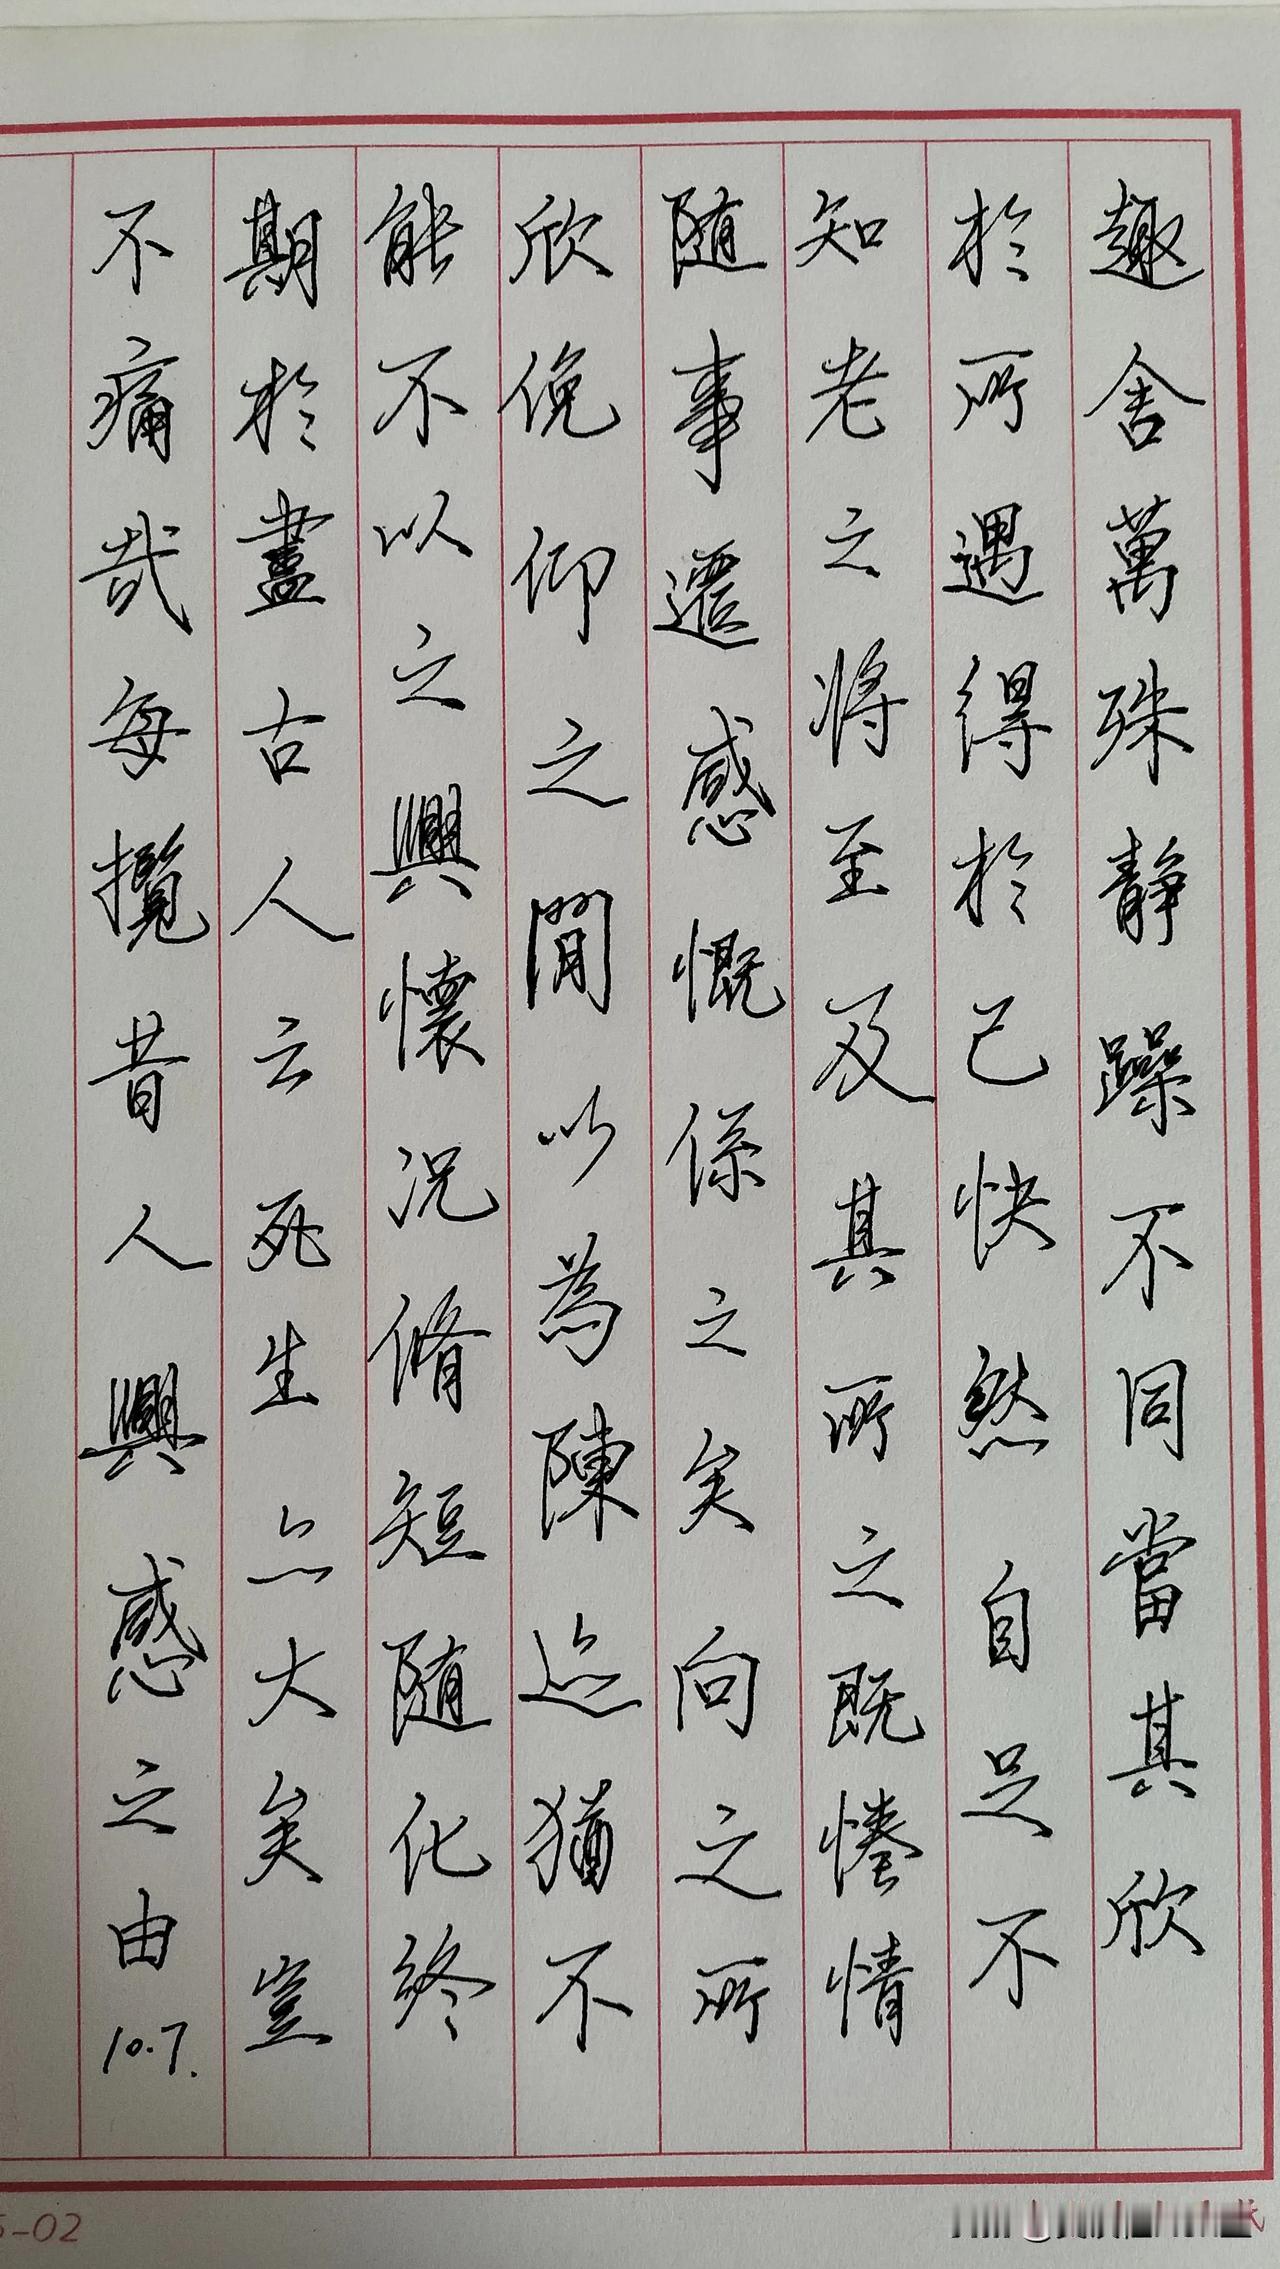 趣舍萬殊静躁不同當其欣
於所遇得於己快然自足不
知老之將至及其所之既惓情
随事遷感慨係之矣向之所
欣俛仰之閒以為陳迹猶不
能不以之興懷況脩短随化終
期於盡古人云死生亦大矣豈
不痛哉每攬昔人興感之由
10.7.
-02